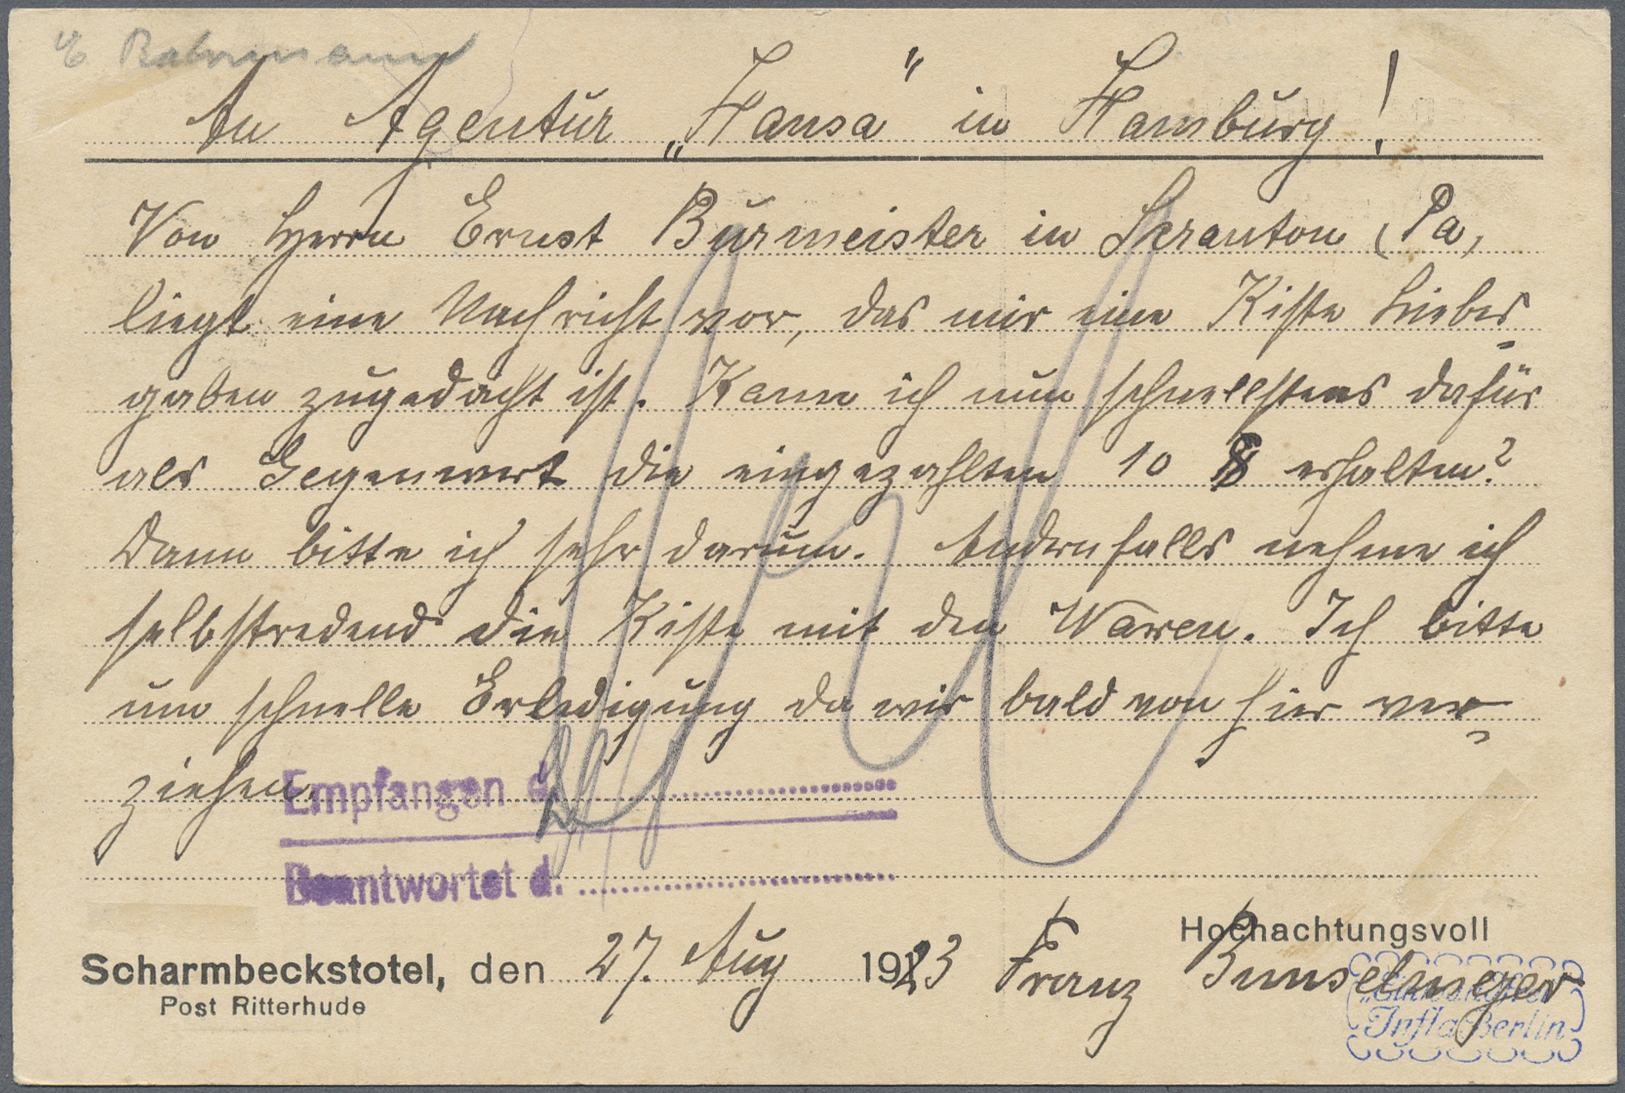 An Agentur „Hansa" in Hamburg!
Von Herrn Ernst Burmeister in Scranton (Pa,
liegt eine Nachricht vor, das mir eine Kiste Liebes-
gaben zugedacht ist. Kann ich nun schnellstens dafür
als Gegenwert die eingezahlten 10 $ erhalten?
Dann bitte ich sehr darum. Andernfalls nehme ich
selbstredend die Kiste mit den Waren. Ich bitte
um schnelle Erledigung da wir bald von hier ver-
ziehen.
Empfangen d.
Beantwortet d.
Hochachtungsvoll
Scharmbeckstotel, den 27. Aug 1923 Franz
Post Ritterhude
Infla Berlin